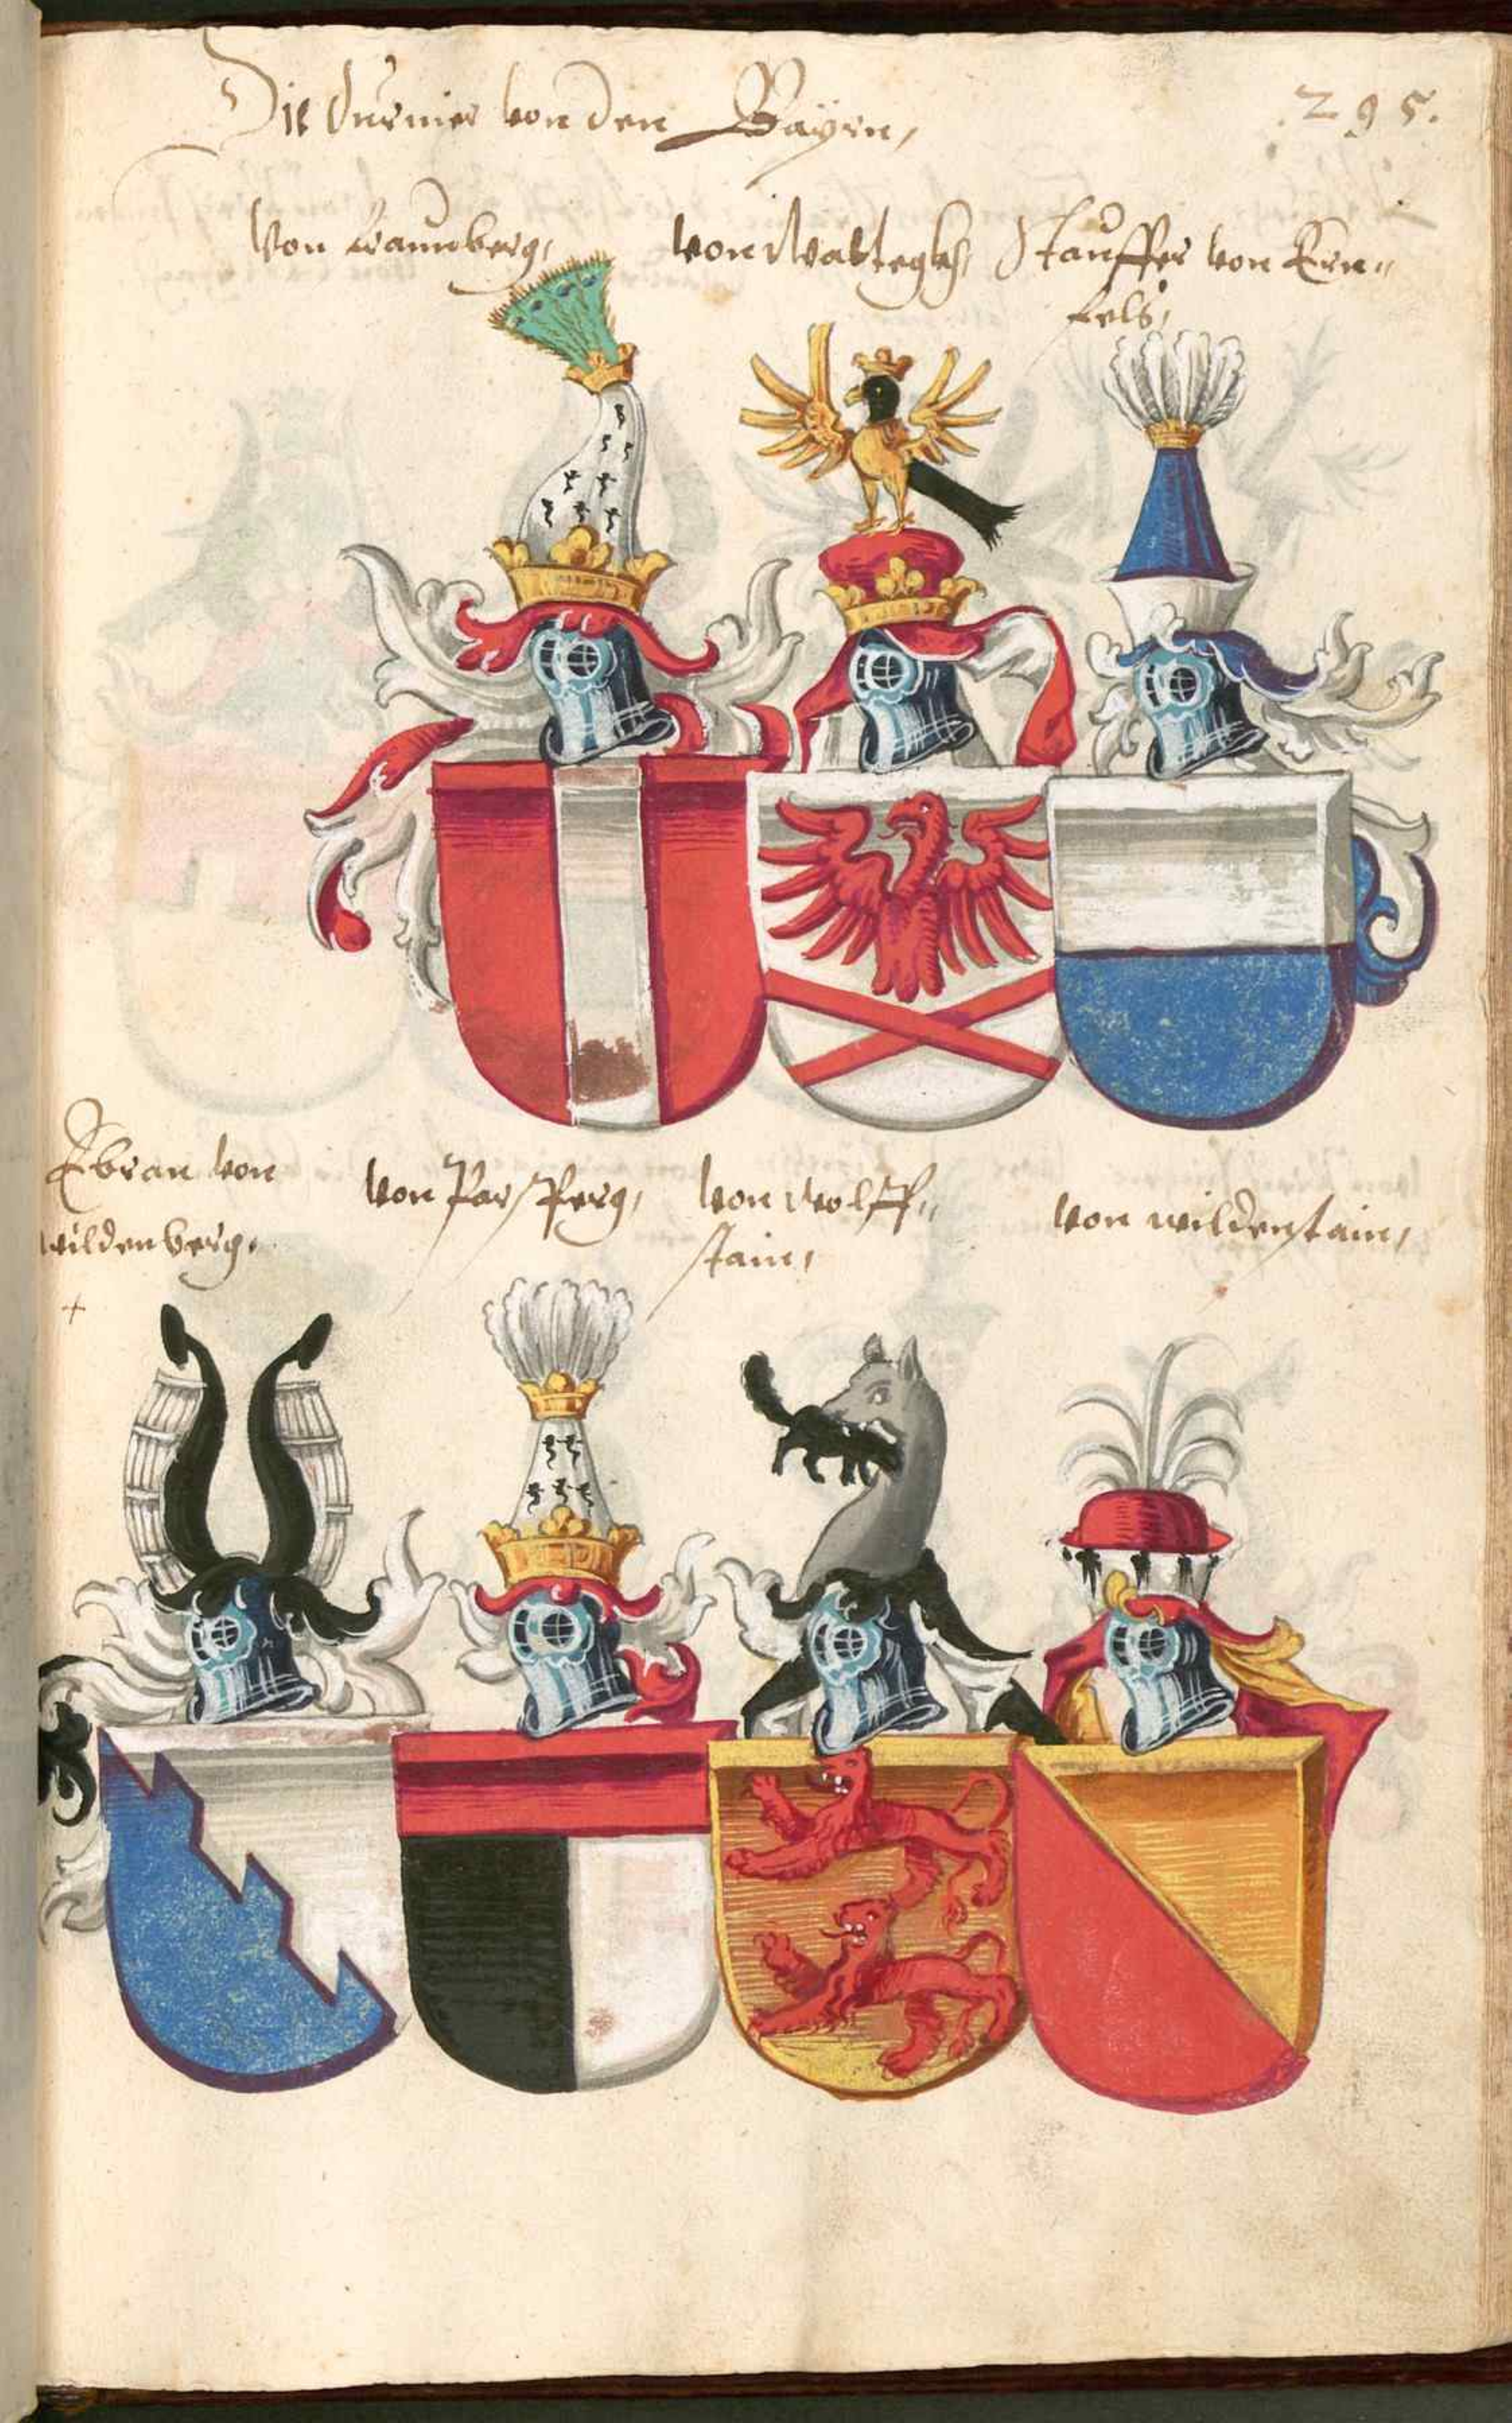 Die Durnier von den Bayrn,
295.
Von Laimberg,
von Wahlegkh,
Stauffer von Ern„
fels,
Ebran von
wildenberg,
Von Parsperg,
Von wolff„
stain,
Von wildenstain,